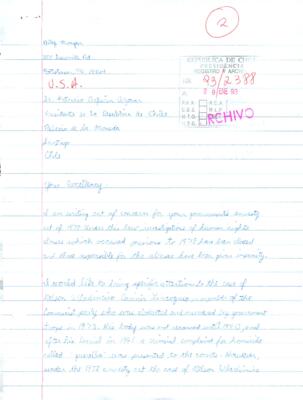 2
REPUBLICA DE CHILE
PRESIDENCIA
REGISTRO Y ARCHIVO
93/2388
ARCHIVO
U.S.A.
Sr. Patricio Aylwin Azocar
Presidente de la República de Chile
Palacio de La Moneda
Santiago
Chile
Your Excellency,
I am writing out of concern for your governments amnesty
act of 1978. Under this law investigations of human rights
abuses which occured previous to 1978 has been closed
and those responsible for the abuses have been given immunity.
I would like to bring specific attention to the case of
member of the
Communist party who was abducted and murdered by government
troops in 1973. His body was not recovered until 1990, and
after his burial in 1991 a criminal complaint for homicide
called was presented to the courts. However,
under the 1978 amnesty act the case of Nelson Wladimiro